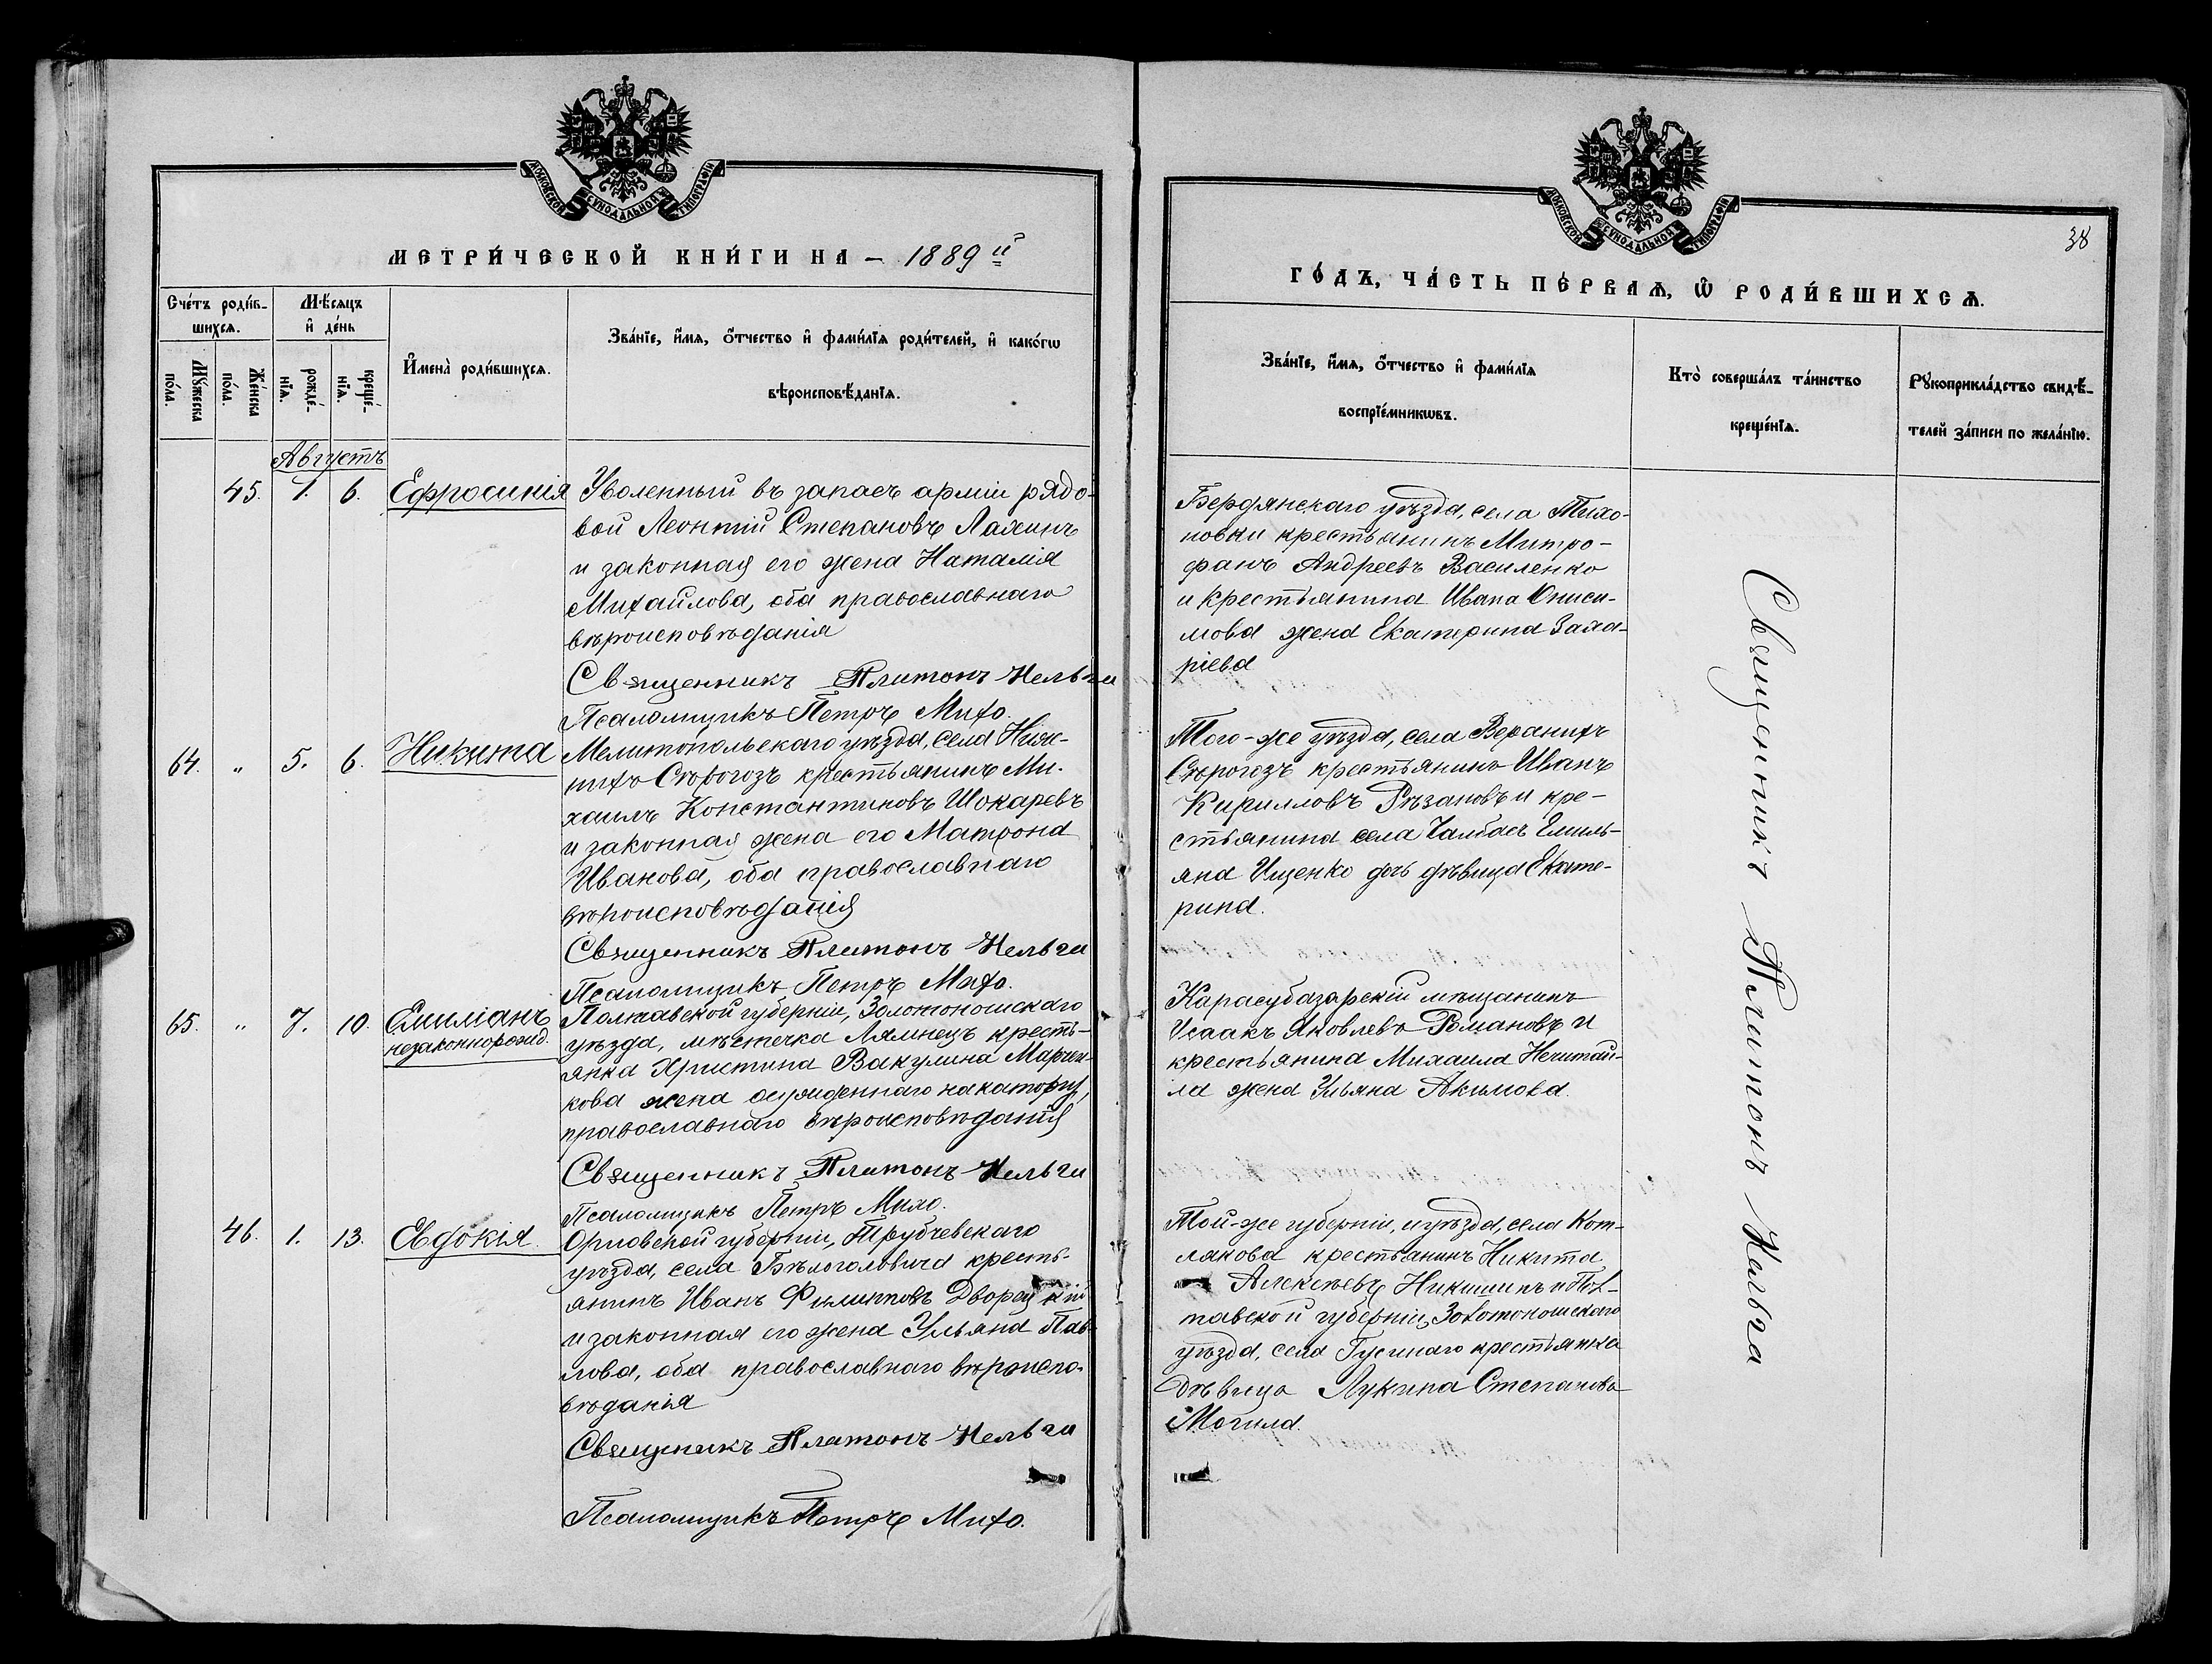 МОСКОВСКОЙ СѴНОДАЛЬНОЙ ТИПОГРАФІИ
МЕТРИ́ЧЕСКОЙ КНИ́ГИ НА – 1889 й
Сче́тъ роди́в-
шихсѧ.
Мѣ́сѧцъ
и҆ де́нь
Мꙋ́жеска
по́ла.
Же́нска
по́ла.
рожде́-
нїѧ.
креще́-
нїѧ.
И҆мена̀ роди́вшихсѧ.
Зва́нїе, и҆́мѧ, ѻ҆́тчество и҆ фами́лїѧ роди́телей, и҆ како́гѡ
вѣроисповѣ́данїѧ.
Августъ
45. 1. 6. Ефросинія
Уволенный въ запасъ арміи рядо-
вой Леонтій Степановъ Лахинъ
и законная его жена Наталія
Михайлова, оба православнаго
вѣроисповѣданія
Священникъ Платонъ Нельга
Псаломщикъ Петръ Михо.
64. " 5. 6. Никита
Мелитопольскаго уѣзда, села Ниж-
нихъ Сѣрогозъ крестьянинъ Ми-
хаилъ Константиновъ Шокаревъ
и законная жена его Матрона
Иванова, оба православнаго
вѣроисповѣданія
Священникъ Платонъ Нельга
Псаломщикъ Петръ Михо.
65. " 7. 10. Емиліанъ
незаконнорожд.
Полтавской губерніи, Золотоношскаго
уѣзда, мѣстечка Лямнецъ кресть-
янка Христина Вакулина Марчен-
кова жена осужденнаго на каторгу,
православнаго вѣроисповѣданія
Священникъ Платонъ Нельга
Псаломщикъ Петръ Михо.
46. 1. 13. Евдокія.
Орловской губерніи, Трубчевскаго
уѣзда, села Бѣлоголовича кресть-
янинъ Иванъ Филипповъ Дворецкій
и законная его жена Ульяна Пав-
лова, оба православнаго вѣроиспо-
вѣданія
Священникъ Платонъ Нельга
Псаломщикъ Петръ Михо.
МОСКОВСКОЙ СѴНОДАЛЬНОЙ ТИПОГРАФІИ
38
ГО́ДЪ, ЧА́СТЬ ПЕ́РВАѦ, Ѡ҆ РОДИ́ВШИХСѦ.
Зва́нїе, и҆́мѧ, ѻ҆́тчество и҆ фами́лїѧ
воспрїе́мникѡвъ.
Кто̀ соверша́лъ та́инство
креще́нїѧ.
Рꙋкоприкла́дство свидѣ́-
телей за́писи по жела́нїю.
Бердянскаго уѣзда, села Тихо-
новки крестьянинъ Митро-
фанъ Андреевъ Василенко
и крестьянина Ивана Ониси-
мова жена Екатерина Заха-
ріева
Того-же уѣзда, села Верхнихъ
Сѣрогозъ крестьянинъ Иванъ
Кирилловъ Рѣзановъ и кре-
стьянина села Чалбасъ Емиль-
яна Ищенко дочь дѣвица Екате-
рина.
Карасубазарскій мѣщанинъ
Исаакъ Яковлевъ Романовъ и
крестьянина Михаила Нечитай-
ла жена Ульяна Акимова.
Той-же губерніи, и уѣзда, села Кот-
лякова крестьянинъ Никита
Алексѣевъ Никишинъ и Пол-
тавской губерніи, Золотоношскаго
уѣзда, села Гусинаго крестьянка
дѣвица Лукина Степанова
Могила.
Священникъ Платонъ Нельга